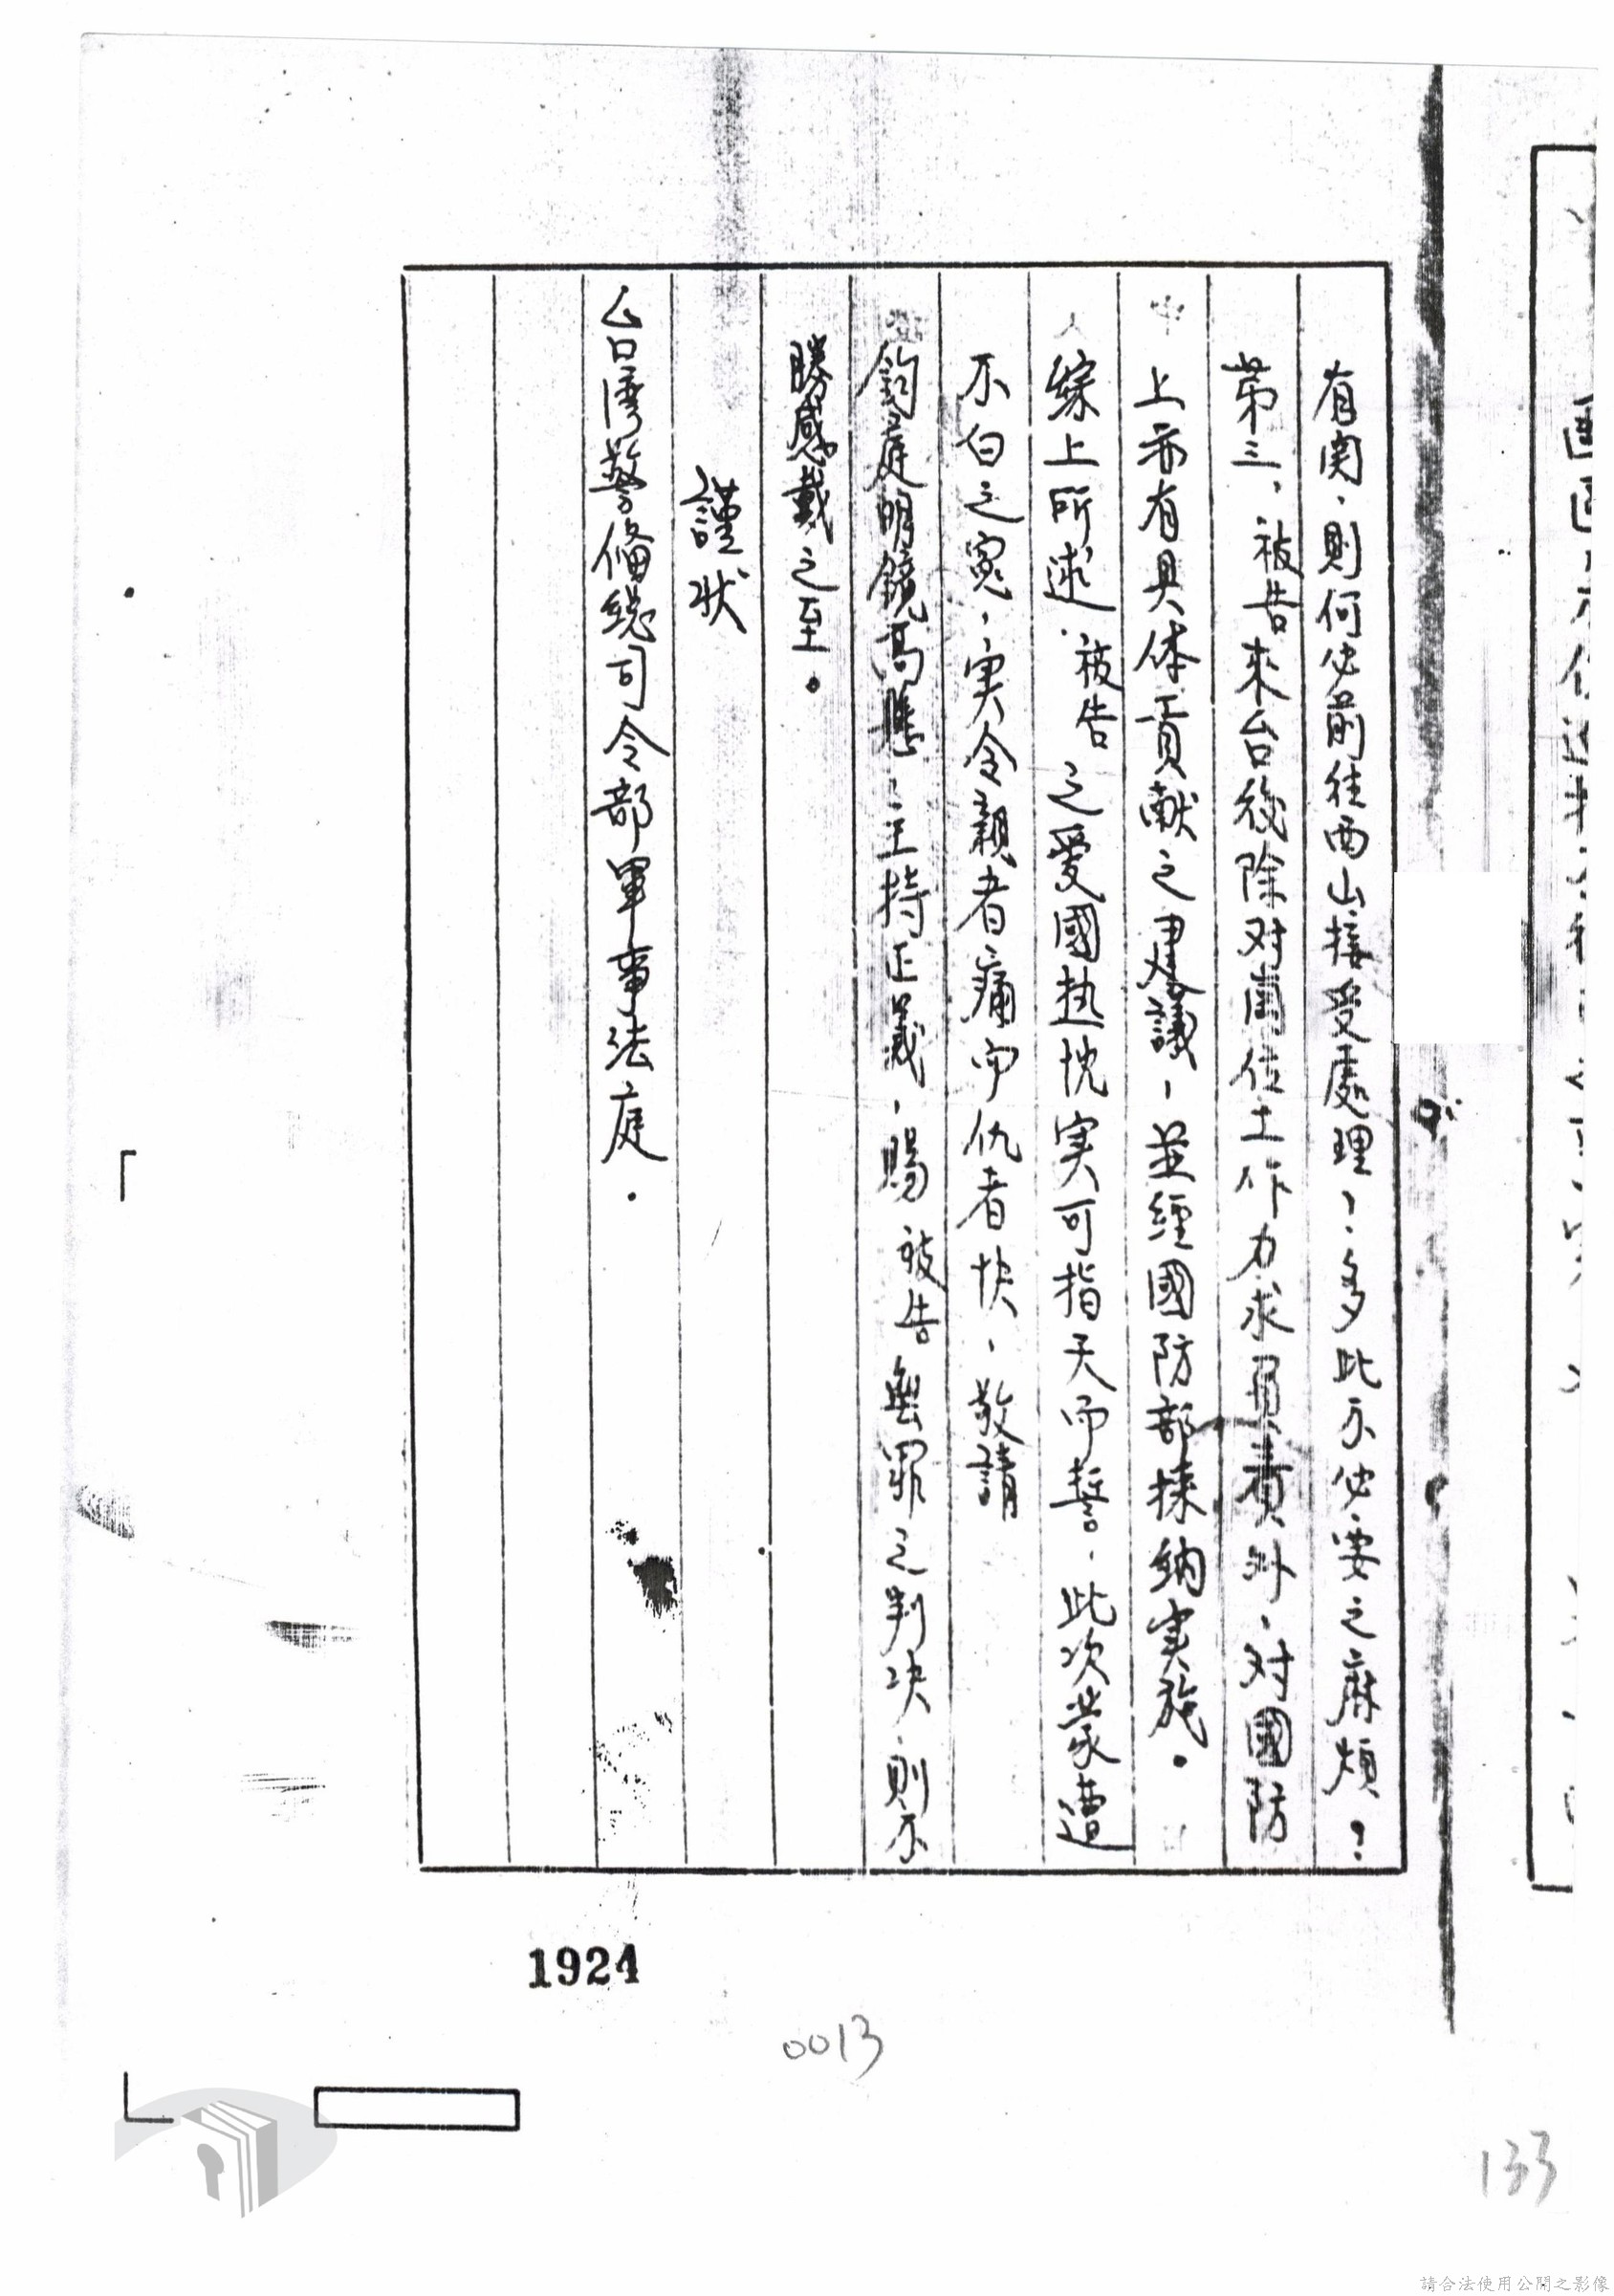 有関，則何必前往西山接受處理，多此不必要之麻煩？
第三，被告來台後除对崗位工作力求負責外，对國防
上亦有具体貢献之建議，並經國防部採納実施。
綜上所述，被告之愛國热忱実可指天而誓，此次蒙遭
不白之冤，実令親者痛而仇者快，敬請
鈞庭明鏡高懸，主持正義，賜被告無罪之判决，則不
勝感戴之至。
謹狀
台湾警俻総司令部軍事法庭．
1924
0013
133
請合法使用公開之影像